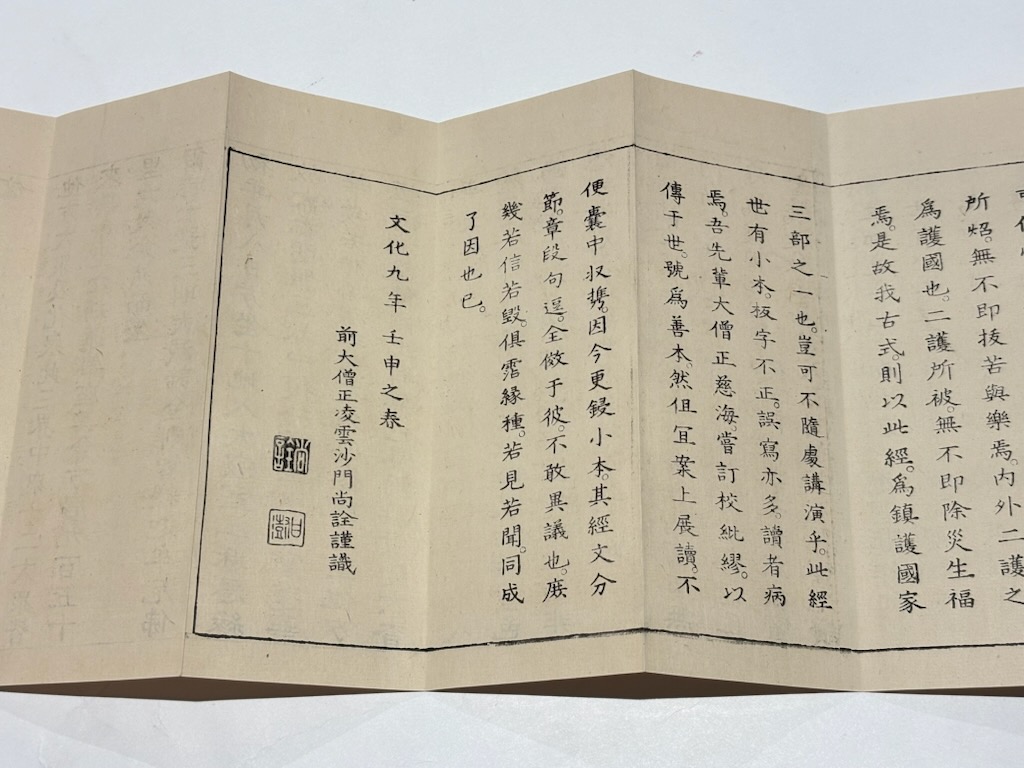 所炤。無不即拔苦與樂焉。内外二護之
為護國也。二護所被。無不即除災生福
焉。是故我古式。則以此經。爲鎮護國家
三部之一也。豈可不隨處講演乎。此經
世有小本。板字不正。誤寫亦多。讀者病
焉。吾先輩大僧正慈海。嘗訂校紕繆。以
傳于世。號爲善本。然但冝案上展讀。不
便囊中収携。因今更鋟小本。其經文分
節。章段句逗。全倣于彼。不敢異議也。庶
幾若信若毀。俱霑縁種。若見若聞。同成
了因也已。
文化九年壬申之春
前大僧正凌雲沙門尚詮謹識
尚詮